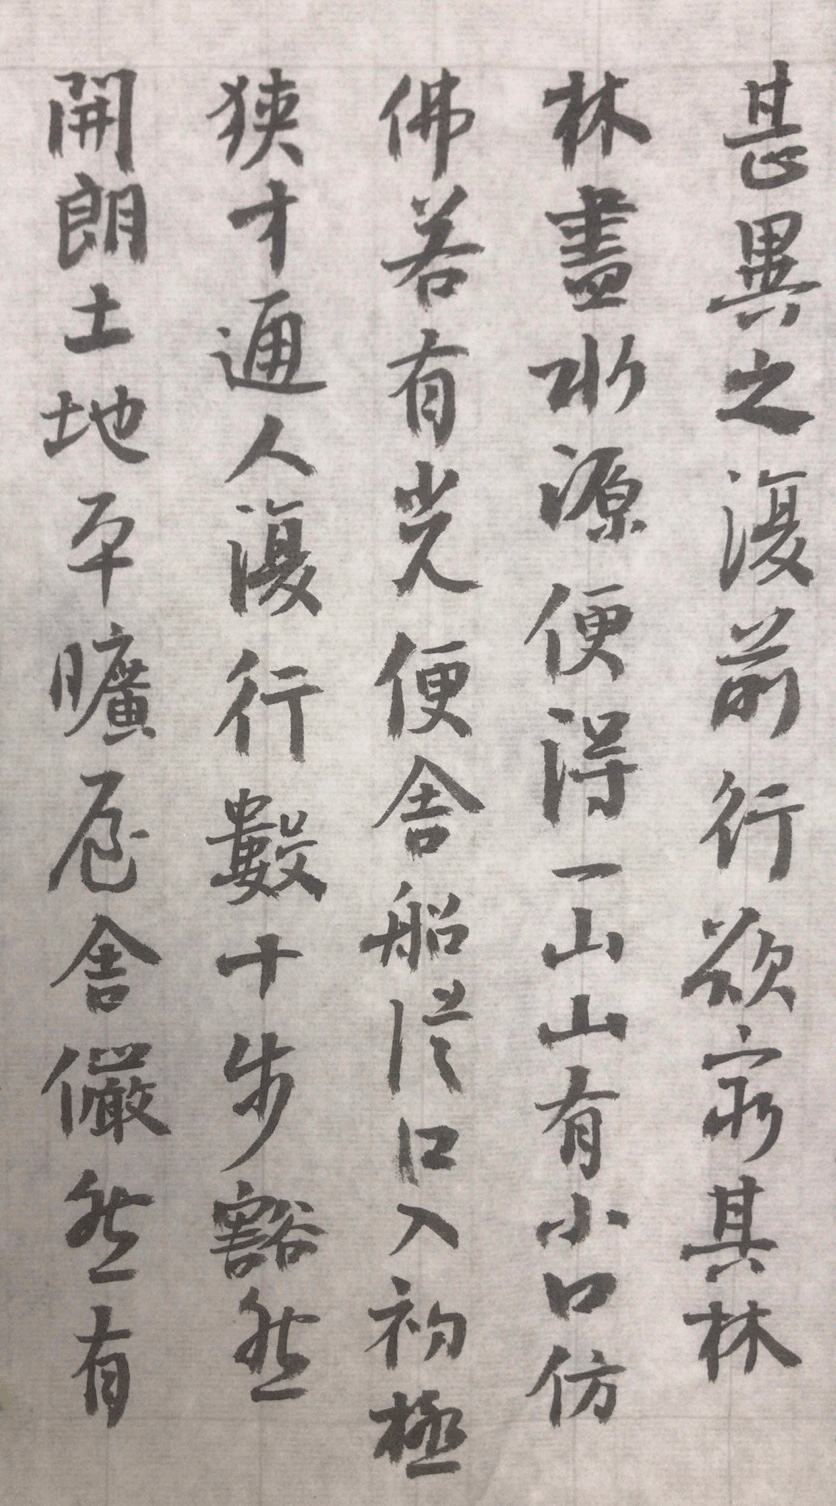 甚異之復前行欲窮其林
林盡水源便得一山山有小口仿
佛若有光便舍船從口入初極
狹才通人復行數十步豁然
開朗土地平曠屋舍儼然有